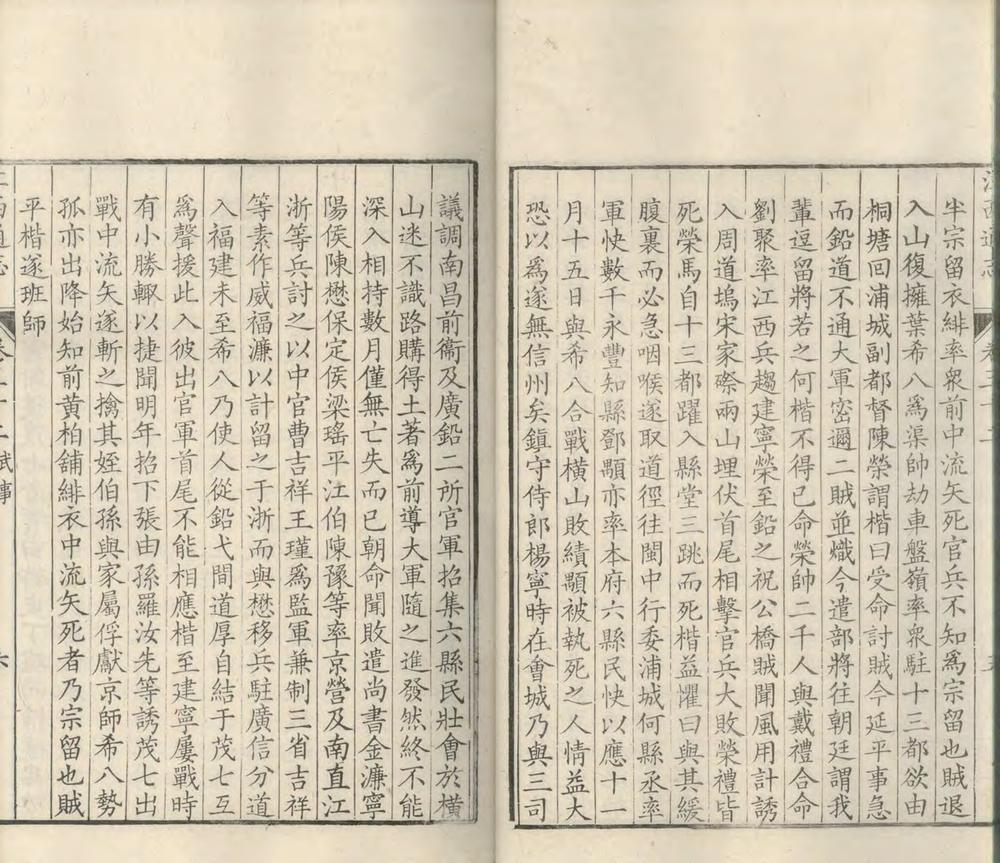 半宗留衣緋率衆前中流矢死官兵不知爲宗留也賊退
入山復擁葉希八爲渠帥劫車盤嶺率衆駐十三都欲由
桐塘回浦城副都督陳榮謂楷曰受命討賊今延平事急
而鉛道不通大軍密邇二賊並熾今遣部將往朝廷謂我
軰逗留將若之何楷不得已命榮帥二千人與戴禮合命
劉聚率江西兵趨建寧榮至鉛之祝公橋賊聞風用計誘
入周道塢宋家際兩山埋伏首尾相擊官兵大敗榮禮皆
死榮馬自十三都躍入縣堂三跳而死楷益懼曰與其緩
腹裏而必急咽喉遂取道徑往閩中行委浦城何縣丞率
軍快數千永豐知縣鄧顒亦率本府六縣民快以應十一
月十五日與希八合戰橫山敗績顒被執死之人情益大
恐以爲遂無信州矣鎮守侍郎楊寧時在會城乃與三司
議調南昌前衞及廣鉛二所官軍招集六縣民壯會於橫
山迷不識路購得土著爲前導大軍隨之進發然終不能
深入相持數月僅無亡失而已朝命聞敗遣尚書金濂寧
陽侯陳懋保定侯梁瑤平江伯陳豫等率京營及南直江
浙等兵討之以中官曹吉祥王瑾爲監軍兼制三省吉祥
等素作威福濂以計留之于浙而與懋移兵駐廣信分道
入福建未至希八乃使人從鉛弋間道厚自結于茂七互
爲聲援此入彼出官軍首尾不能相應楷至建寧屢戰時
有小勝輙以捷聞明年招下張由孫羅汝先等誘茂七出
戰中流矢遂斬之擒其姪伯孫與家屬俘獻京師希八勢
孤亦出降始知前黃柏舖緋衣中流矢死者乃宗留也賊
平楷遂班師